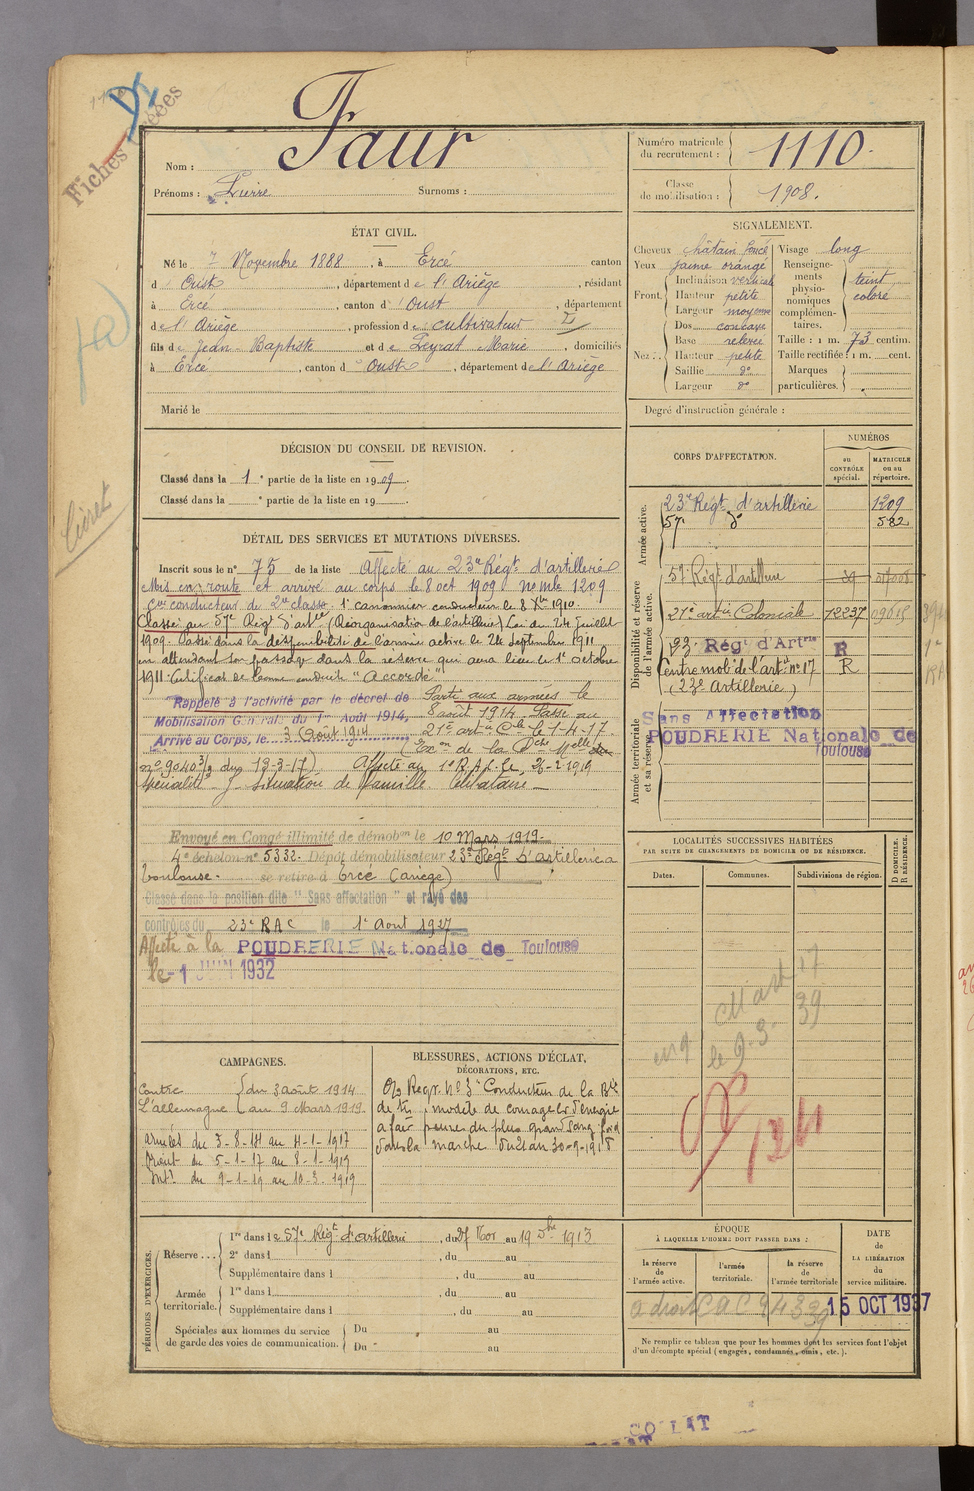 Fiches créées
Nom : Faur
Prénoms : Pierre Surnoms :
Numéro matricule du recrutement : 1110.
Classe de mobilisation : 1908.
ÉTAT CIVIL.
Né le 7 Novembre 1888, à Ercé canton
d'Oust, département de l'Ariège, résidant
à Ercé, canton d'Oust, département
de l'Ariège, profession de cultivateur
fils de Jean-Baptiste et de Peyrat Marie, domiciliés
à Ercé, canton d'Oust, département de l'Ariège
Marié le
SIGNALEMENT.
Cheveux châtain foncé
Yeux jaune orangé
Front. Inclinaison verticale
Hauteur petite
Largeur moyenne
Nez : Dos concave
Base relevée
Hauteur petite
Saillie d°
Largeur d°
Visage long
Renseignements physionomiques complémentaires. teint coloré
Taille : 1 m. 73 centim.
Taille rectifiée : 1 m. cent.
Marques particulières.
Degré d'instruction générale :
DÉCISION DU CONSEIL DE REVISION.
Classé dans la 1e partie de la liste en 1909.
Classé dans la e partie de la liste en 19
DÉTAIL DES SERVICES ET MUTATIONS DIVERSES.
Inscrit sous le n° 75 de la liste Affecté au 23e Régt d'artillerie
Mis en route et arrivé au corps le 8 oct 1909 no mle 1209
conducteur de 2e classe. 1er canonnier conducteur le 8 Xbre 1910.
Classé au 57e Régt d'artie (Réorganisation de l'artillerie) Loi du 24 Juillet
1909. Passé dans la disponibilité de l'armée active le 24 Septembre 1911
en attendant son passage dans la réserve qui aura lieu le 1er octobre
1911. Certificat de bonne conduite "Accordé"
Rappelé à l'activité par le décret de
Mobilisation Générale du 1er Août 1914,
Arrivé au Corps, le 3 Août 1914
Parti aux armées le
8 août 1914 Passé au
21e artie Cle le 1-4-17.
(Exon de la Dche Mlle
no 9040 3/3 du 13-3-17) Affecté au 1er R.A. 2-1919
Situation de famille Célibataire
Envoyé en Congé illimité de démobon le 10 Mars 1919.
4e échelon n° 5332. Dépôt démobilisateur 23e Régt d'artillerie à
Toulouse. se retire à Ercé (ariège)
Classé dans la position dite "Sans affectation" et rayé des
contrôles du 23e RAC le 1er Aout 1927
Affecté à la POUDRERIE Nationale de Toulouse
le - 1 JUIN 1932
CORPS D'AFFECTATION.
NUMÉROS
au CONTRÔLE spécial.
MATRICULE ou au répertoire.
Armée active.
23e Régt d'artillerie 1209
57e d° 582
Disponibilité et réserve de l'armée active.
57e Régt d'artillerie 39
21e artie Coloniale 12237
23e Régt d'Artrie R
Centre mob. de l'artie n° 17 R
(23e Artillerie)
Armée territoriale et sa réserve.
Sans Affectation
POUDRERIE Nationale de
Toulouse
LOCALITÉS SUCCESSIVES HABITÉES
PAR SUITE DE CHANGEMENTS DE DOMICILE OU DE RÉSIDENCE.
Dates. Communes. Subdivisions de région.
D DOMICILE. R RÉSIDENCE.
CM art 17
eng le 9.3 39
124
Livret
CAMPAGNES.
Contre l'Allemagne du 3 août 1914 au 9 Mars 1919
armées du 3-8-14 au 4-1-1917
Orient du 5-1-17 au 8-1-1919
Intr du 9-1-19 au 10-3-1919
BLESSURES, ACTIONS D'ÉCLAT,
DÉCORATIONS, ETC.
O/s Regt. No 3 "Conducteur de la Bie
de tir, modèle de courage et d'énergie
a fait preuve du plus grand sang froid
dans la marche du 21 au 30-9-1918
PÉRIODES D'EXERCICES.
Réserve... 1re dans le 57e Régt d'artillerie, du 27 Nov au 19 Dbre 1913
2e dans l , du au
Supplémentaire dans l , du au
Armée territoriale. 1re dans l , du au
Supplémentaire dans l , du au
Spéciales aux hommes du service de garde des voies de communication. Du au
Du au
ÉPOQUE
À LAQUELLE L'HOMME DOIT PASSER DANS :
la réserve de l'armée active.
l'armée territoriale.
la réserve de l'armée territoriale
DATE de LA LIBÉRATION du service militaire.
a droit C A C
15 OCT 1937
Ne remplir ce tableau que pour les hommes dont les services font l'objet
d'un décompte spécial (engagés, condamnés, omis, etc.).